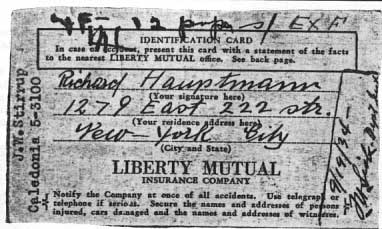 IDENTIFICATION CARD
In case of accident, present this card with a statement of the facts
to the nearest LIBERTY MUTUAL office. See back page.
Richard Hauptmann
(Your signature here)
1279 East 222 str.
(Your residence address here)
New-York City
(City and State)
LIBERTY MUTUAL
INSURANCE COMPANY
Notify the Company at once of all accidents. Use telegraph or
telephone if serious. Secure the names and addresses of persons
injured, cars damaged and the names and addresses of witnesses.
J.W.Stirrup
Caledonia 5-3100
9/19/34-